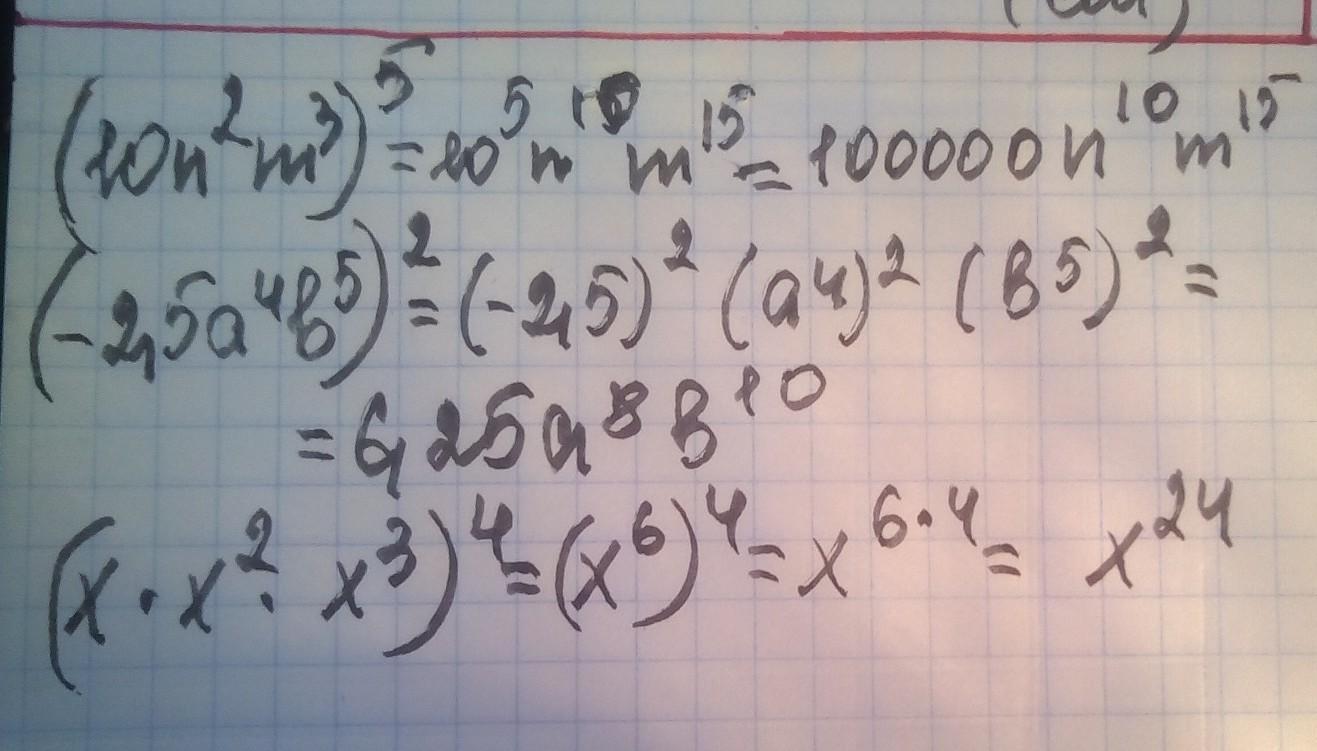 (10n²m³)⁵=10⁵n¹⁰ m¹⁵=100000n¹⁰m¹⁵
(-2,5a⁴b⁵)²=(-2,5)² (a⁴)² (b⁵)²=
=6,25a⁸b¹⁰
(x·x²·x³)⁴=(x⁶)⁴=x⁶·⁴=x²⁴